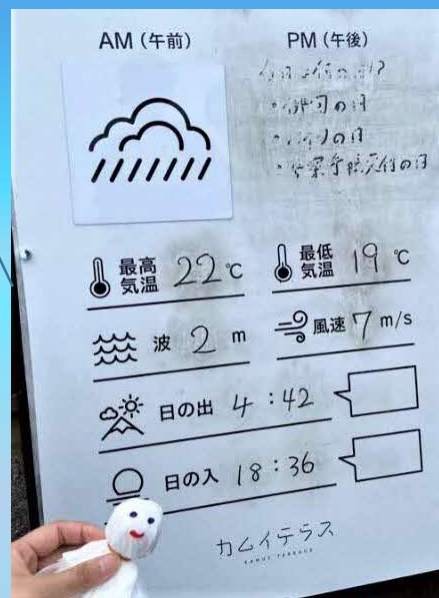 AM（午前）
PM（午後）
今日は何の日？
・俳句の日
・バイクの日
・専業主婦休みの日
最高気温 22℃
最低気温 19℃
波 2 m
風速 7 m/s
日の出 4:42
日の入 18:36
カムイテラス
KAMUI TERRACE